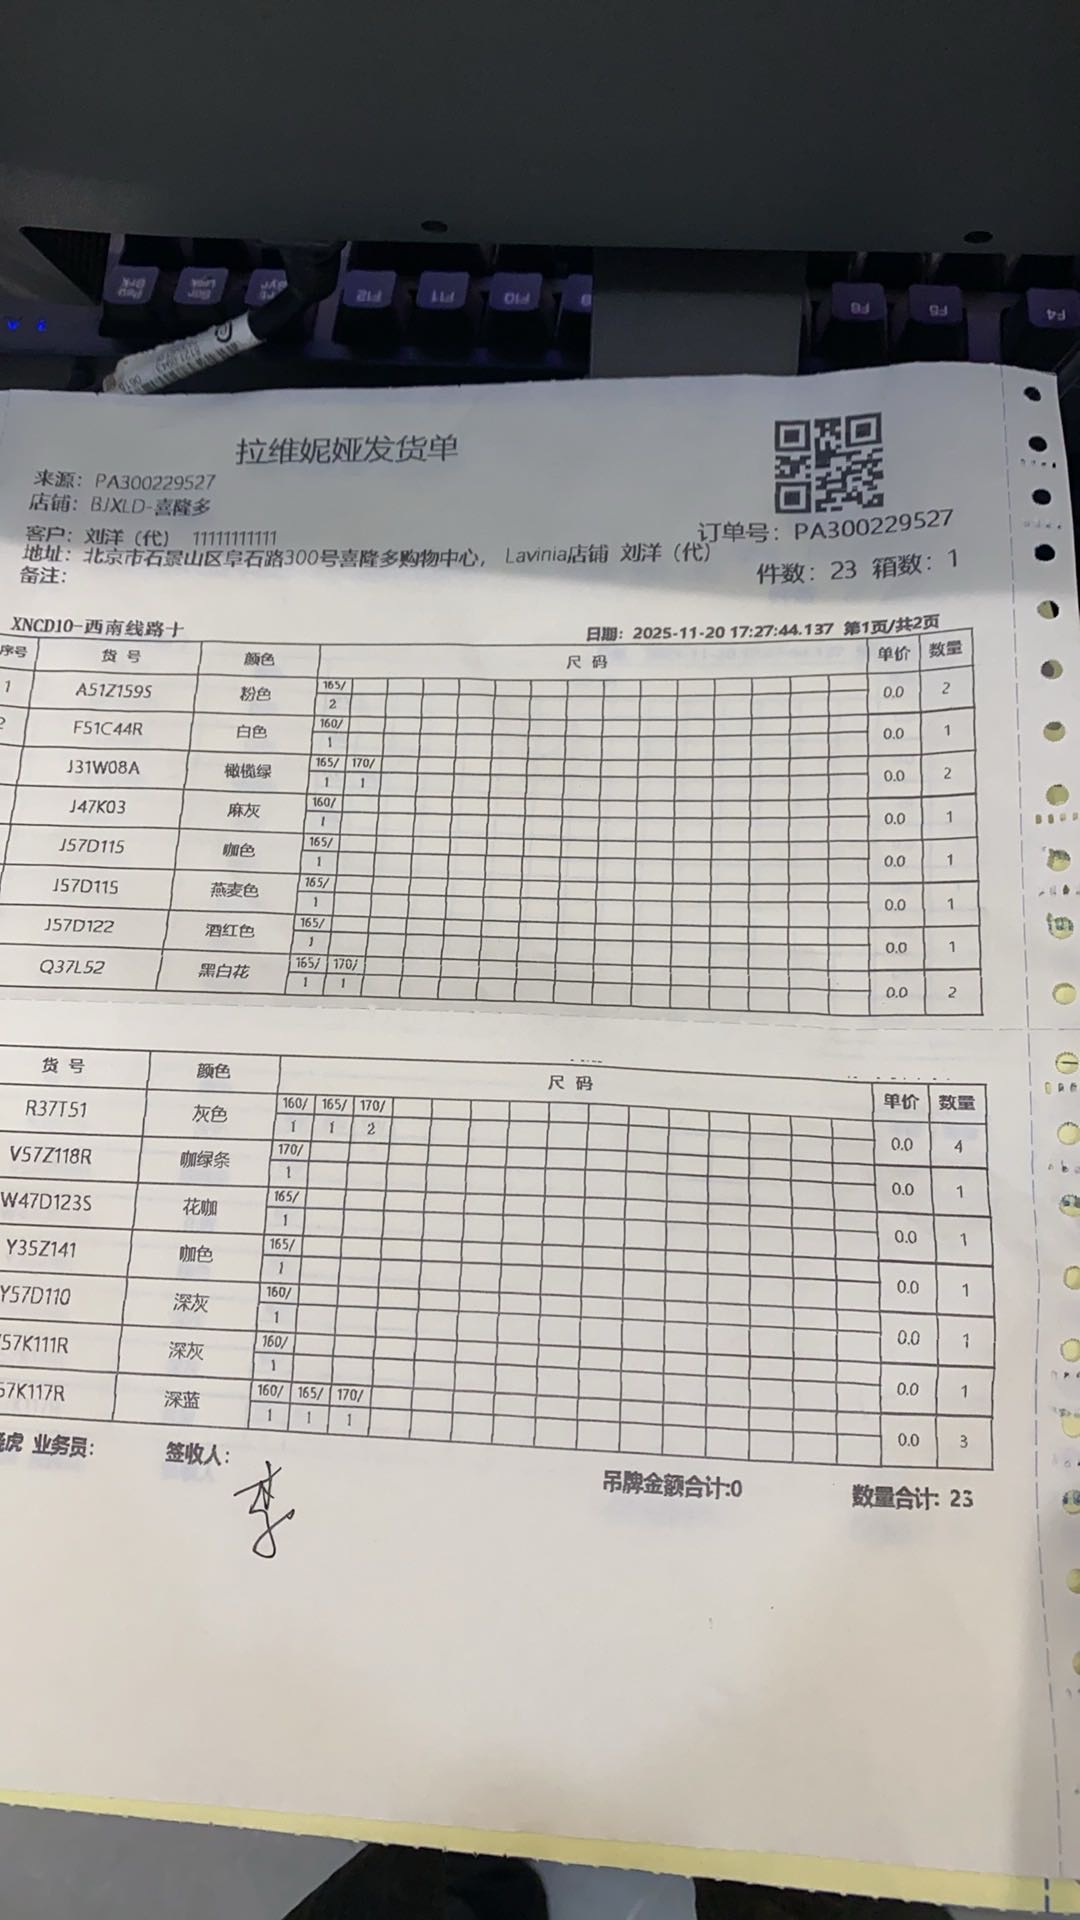 拉维妮娅发货单
来源：PA300229527
店铺：BJXLD-喜隆多
客户：刘洋（代） 11111111111
订单号：PA300229527
地址：北京市石景山区阜石路300号喜隆多购物中心， Lavinia店铺 刘洋（代）
件数：23 箱数：1
备注：
XNCD10-西南线路十
日期：2025-11-20 17:27:44.137 第1页/共2页
序号 货号 颜色 尺码 单价 数量
1 A51Z159S 粉色 165/ 0.0 2
2
2 F51C44R 白色 160/ 0.0 1
1
J31W08A 橄榄绿 165/ 170/ 0.0 2
1 1
J47K03 麻灰 160/ 0.0 1
1
J57D115 咖色 165/ 0.0 1
1
J57D115 燕麦色 165/ 0.0 1
1
J57D122 酒红色 165/ 0.0 1
1
Q37L52 黑白花 165/ 170/ 0.0 2
1 1
货号 颜色 尺码 单价 数量
R37T51 灰色 160/ 165/ 170/ 0.0 4
1 1 2
V57Z118R 咖绿条 170/ 0.0 1
1
W47D123S 花咖 165/ 0.0 1
1
Y35Z141 咖色 165/ 0.0 1
1
Y57D110 深灰 160/ 0.0 1
1
57K111R 深灰 160/ 0.0 1
1
57K117R 深蓝 160/ 165/ 170/ 0.0 3
1 1 1
虎 业务员： 签收人：
吊牌金额合计:0 数量合计: 23
F12 F11 F10 F6 F5 F4